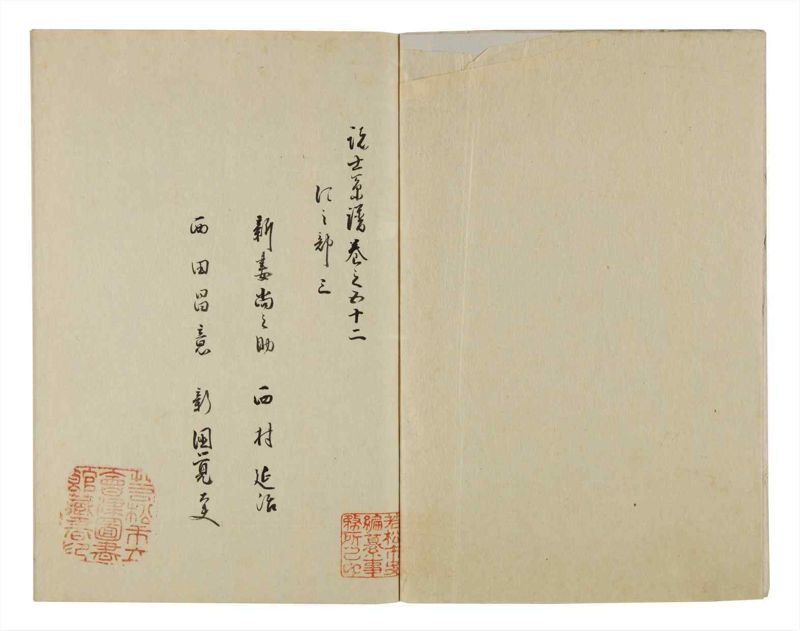 諸士系譜巻之五十二
に之部 三
新妻尚之助 西村延治
西田昌意 新國
若松市史
編纂事
務所之印
若松市立
會津圖書
館藏書印